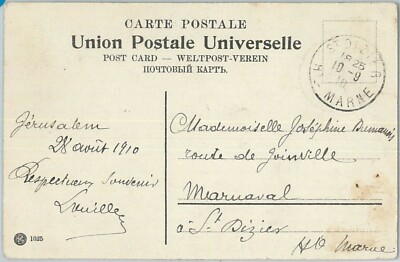 CARTE POSTALE
Union Postale Universelle
POST CARD — WELTPOST-VEREIN
ПОЧТОВЫЙ КАРТЪ.
ST DIZIER
18 25
10 - 9
MARNE
Jérusalem
28 août 1910
Respectueux Souvenir
Mademoiselle Joséphine
route de Joinville
Marnaval
à St Dizier
Hte Marne
1025